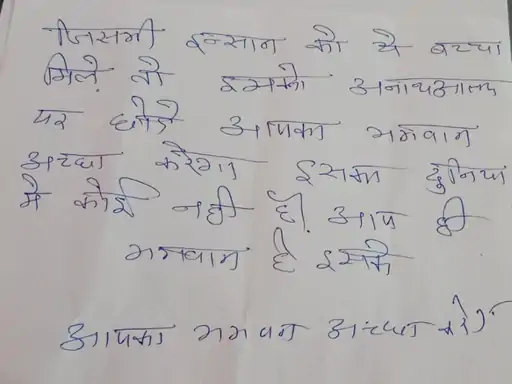 जिसभी इन्सान को ये बच्चा
मिले तो इसको अनाथआलय
पर छोडे आपका भगवान
अच्छा करेगा इसका दुनिया
मै कोई नही है। आप ही
भगवान है इसके
आपका भगवान अच्छा करे